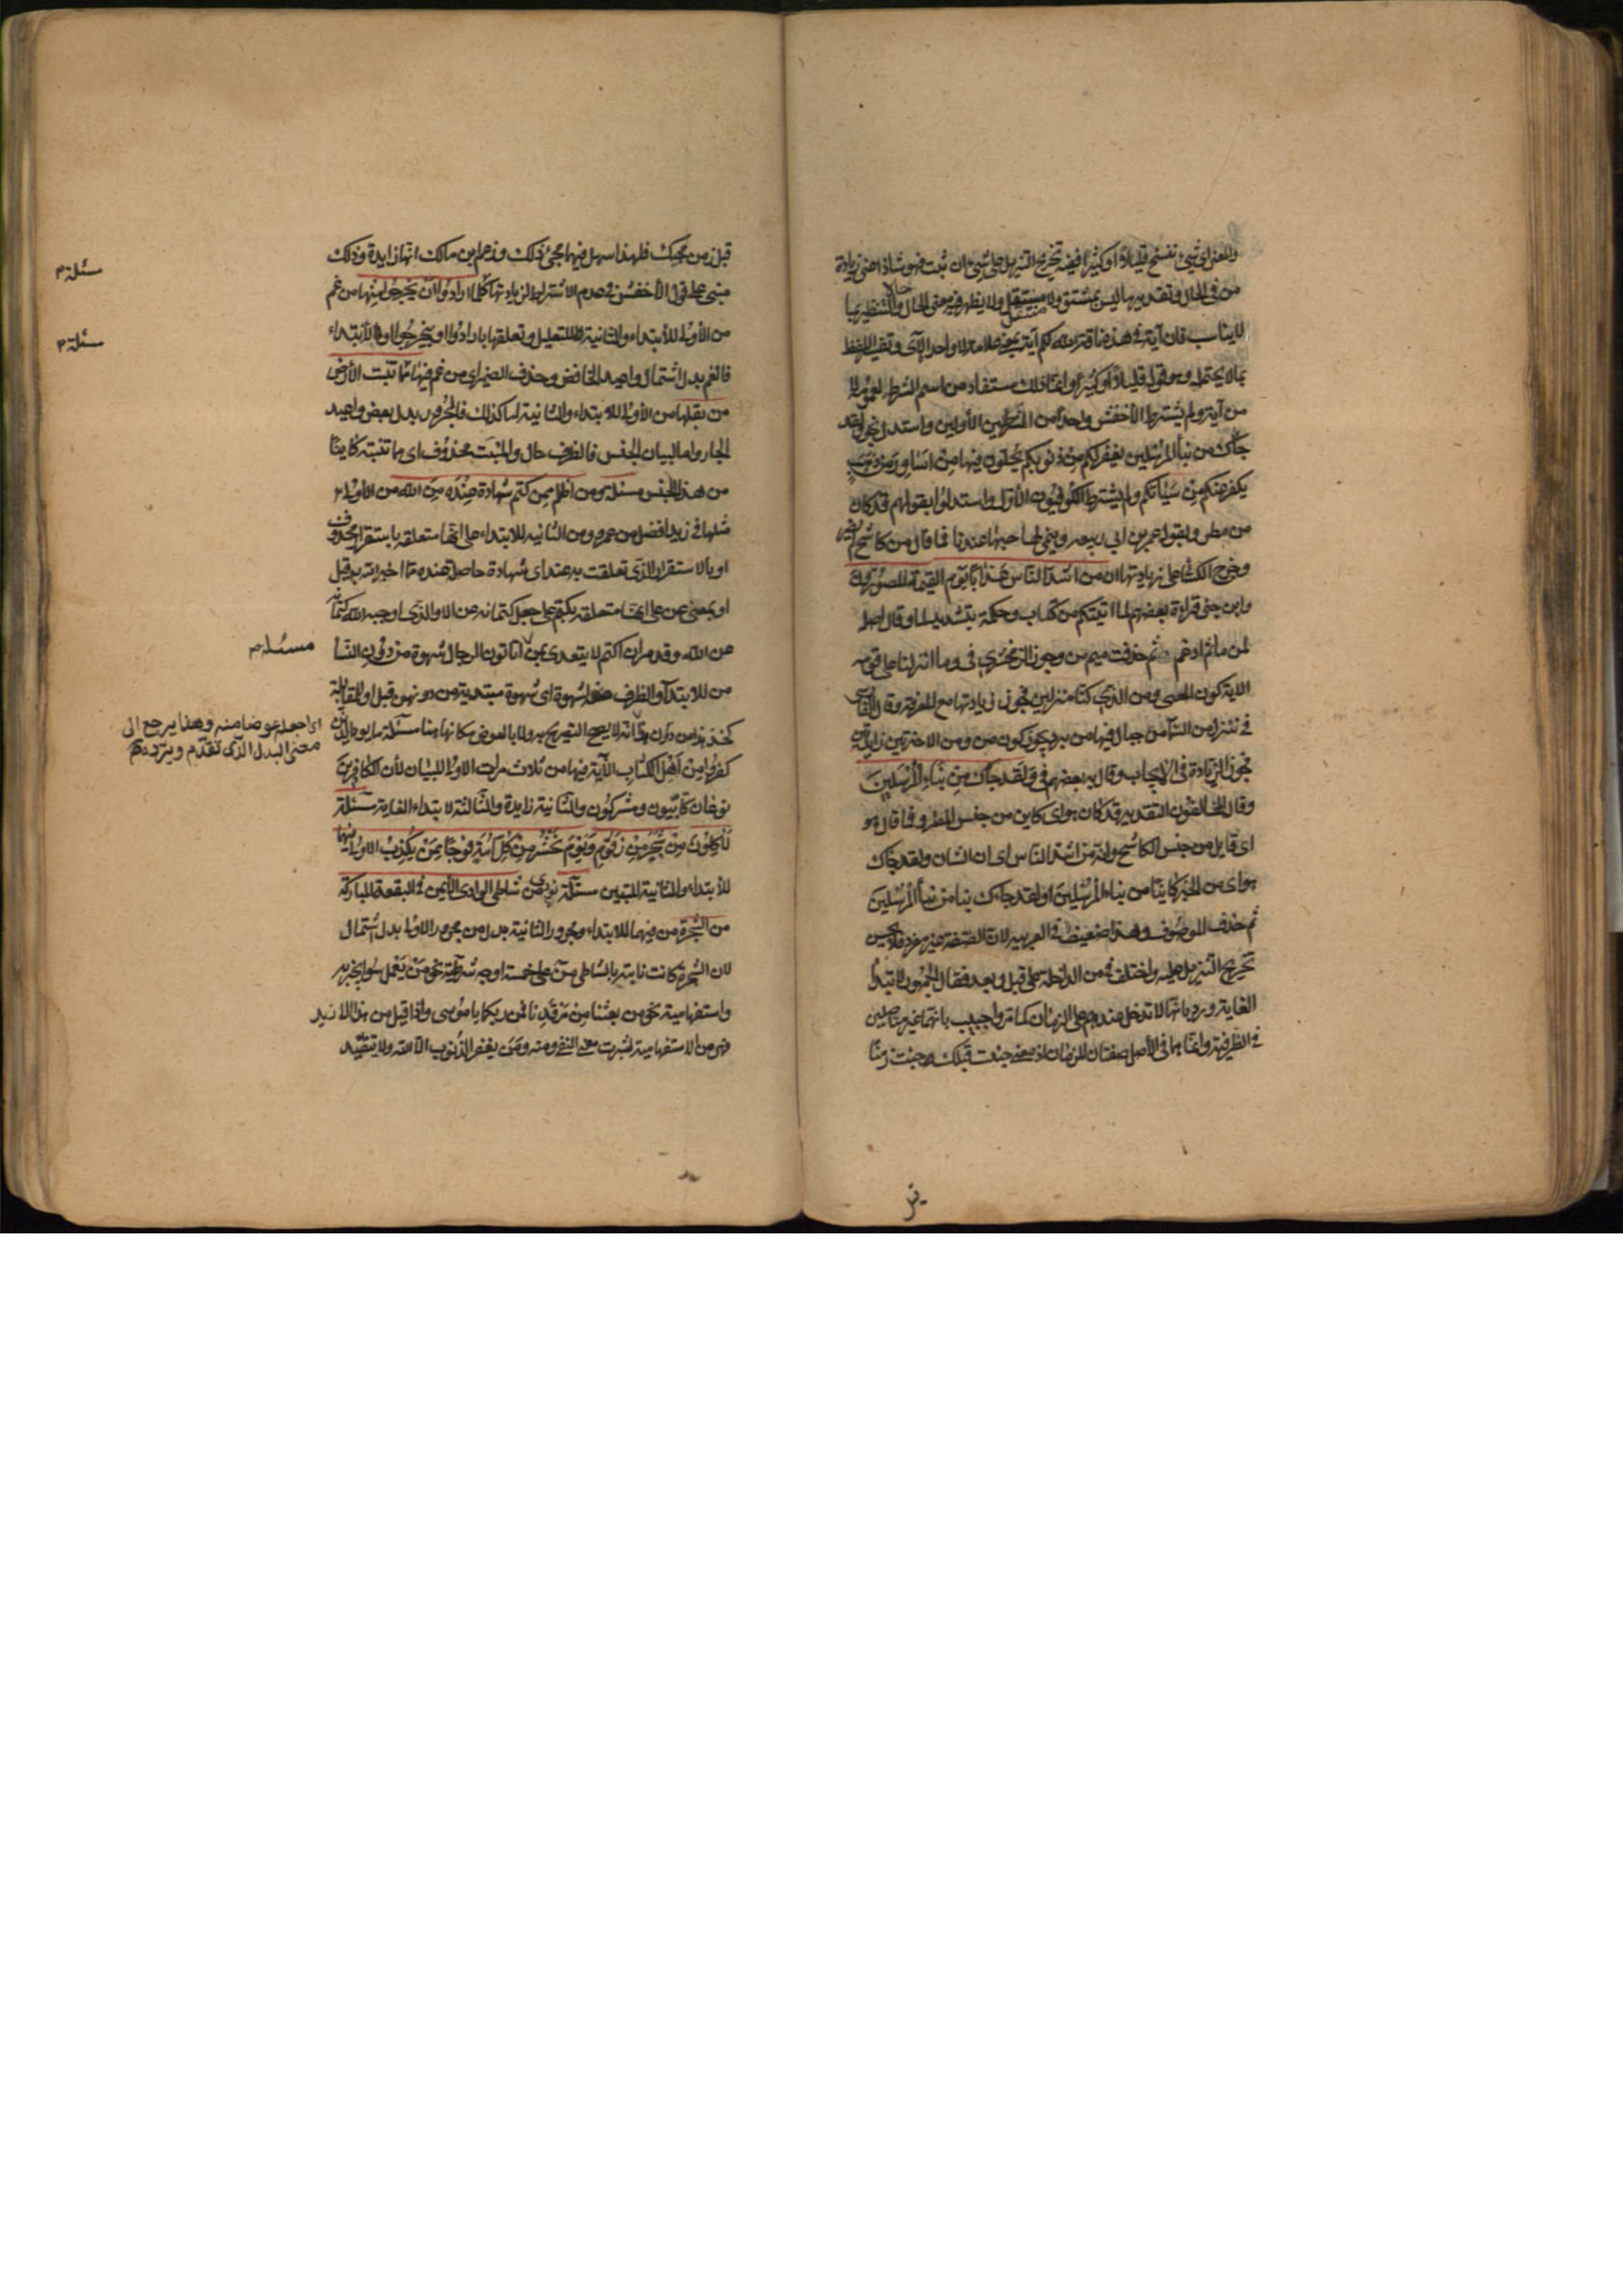 والمعنى اى شئ ننسخ قليلاً او كثيراً ففيه تخريج التنزيل على شئ ان ثبت فهو شاذ اعنى زيادة
من فى الحال وتقديرها ليس بمشتق ولا مستقل ولا يظهر فيه معنى الحال حالا والتنظير بما
لا يناسب فان آية فى هذه ناقة الله لكم آية بمعنى علامة لا واحد الآى وتفسير اللفظ
بما لا يحتمله وهو قوله قليلاً او كثيراً وانما ذلك مستفاد من اسم الشرط لعمومه لا
من آية ولم يشترط الأخفش واحدا من الشرطين الأولين واستدل بنحو ولقد
جاءك من نبأ المرسلين يغفر لكم من ذنوبكم يحلون فيها من اساور من ذهب
يكفر عنكم من سيئاتكم ولم يشترط الكوفيون الأول واستدلوا بقولهم قد كان
من مطر وبقول عمر بن ابى ربيعه وينمى لها حبها عندنا فما قال من كاشح لم يضر
وخرج الكسائى على زيادتها ان من اشد الناس عذابا يوم القيمة المصورون
وابن جنى قراءة بعضهم لما اتيتكم من كتاب وحكمة بتشديد لما وقال اصله
لمن ما ثم ادغم ثم حذفت ميم من وجوز الزمخشرى فى وما انزلنا على قومه
الاية كون المعنى ومن الذى كنا منزلين فجوز زيادتها مع المعرفة وقال الفارسى
فى ننزل من السماء من جبال فيها من برد يجوز كون من ومن الاخيرتين زايدتين
فجوز الزيادة فى الايجاب وقال به بعضهم فى ولقد جاءك من نباء المرسلين
وقال المخالفون التقدير قد كان هو اى كاين من جنس المطر وفما قال هو
اى قايل من جنس الكاشح وانه من اشد الناس اى ان الشان ولقد جاءك
هو اى من الخبر كاينا من نباء المرسلين او لقد جاءك نبا من نبأ المرسلين
ثم حذف الموصوف وهذا ضعيف فى العربيه لان الصفة غير مفرد فلا يحسن
تخريج التنزيل عليه واختلف فى من الداخلة على قبل وبعد فقال الجمهور لابتداء
الغاية ورد بانها لا تدخل عندهم على الزمان كما مر واجيب بانهما غير متاصلين
فى الظرفية وانما هما فى الأصل صفتان للزمان اذ معنى جئت قبلك جئت زمنا
قبل زمن مجيئك فلهذا سهل فيهما مجئ ذلك وزعم ابن مالك انها زايدة وذلك
مبنى على قول الأخفش فى عدم الاشتراط لزيادتها كلما ارادوا ان يخرجوا منها من غم
من الأولى للأبتداء والثانية للتعليل وتعلقها بارادوا او بيخرجوا او للأبتداء
فالغم بدل اشتمال واعيد الخافض وحذف الضمير اى من غم فيها مما تنبت الأرض
من بقلها من الأولى للابتداء والثانية اما كذلك فالمجرور بدل بعض واعيد
الجار واما لبيان الجنس فالظرف حال والمنبت محذوف اى مما تنبته كاينا
من هذا الجنس مسئلة ومن اظلم ممن كتم شهادة عنده من الله من الاولى
مثلها فى زيد افضل من عمرو ومن الثانيه للابتداء على انها متعلقه باستقرار محذوف
او بالاستقرار الذى تعلقت به عند اى شهادة حاصلة عنده مما اخبر الله به قيل
او بمعنى عن على انها متعلقه بكتم على جعل كتمانه عن الاداء الذى اوجبه الله كتمانه
عن الله وقد مر ان اكتم لا يتعدى بمن اتاتون الرجال شهوة من دون النسأ
من للابتدآ والظرف صفه لشهوة اى شهوة مبتدءية من دونهن قيل او للمقابلة
كخذ هذا من دون هذا انه لا يصح التصريح به ولا بالعوض مكانها هنا مسئلة ما يود الذين
كفروا من اهل الكتاب الآية فيها من ثلاث مرات الاولى للبيان لأن الكافرين
نوعان كتابيون ومشركون والثانية زايدة والثالثة لابتداء الغاية مسئلة
لآكلون من شجر من زقوم ويوم نحشر من كل امة فوجا ممن يكذب الاولى منهما
للأبتداء والثانية للتبيين مسئلة نودى من شاطئ الوادى الأيمن فى البقعة المباركة
من الشجرة من فيهما للابتداء ومجرور الثانية بدل من مجرور الاولى بدل اشتمال
لان الشجرة كانت نابتة بالشاطى من على خمسة اوجه شرطية نحو من يعمل سوءا يجز به
واستفهامية نحو من بعثنا من مرقدنا فمن ربكما يا موسى واذا قيل من هذا الا زيد
فهى من الاستفهامية اشربت معنى النفى ومنه ومن يغفر الذنوب الا الله ولا يتقيد
مسئلة
مسئلة
مسئلة
اى اجعله عوضا منه وهذا يرجع الى
معنى البدل الذى تقدم ويرده